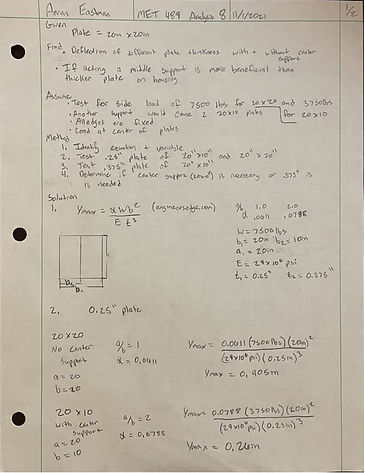 Ann Eastman MET 489 Analysis 8 11/1/2021 1/2
Given
Plate = 20in x 20in
Find
• Deflection of different plate thickness with + without center support
• If adding a middle support is more beneficial than
thicker plate on housing
Assume
• Test for side load of 7500 lbs for 20x20 and 3750lbs
• Another support would cause 2 20x10 plates for 20x10
• All edges are fixed
• Load at center of plates
Method
1. Identify equation + variable
2. Test .25" plate of 20"x10" and 20"x20"
3. Test .375" plate of 20"x10"
4. Determine if center support (20in) is necessary or .375" is
is needed
Solution
1. Ymax = αWb² / Et³ (engineersedge.com)
a/b 1.0 2.0
α .0611 .0788
W = 7500lbs
b₁ = 20in b₂ = 10in
a₁ = 20in
E = 29x10⁶ psi
t₁ = 0.25" t₂ = 0.375"
b₂
b₁
2. 0.25" plate
20x20
No center
support
a = 20
b = 20
a/b = 1
α = 0.0611
Ymax = 0.0611 (7500lbs)(20in)² / (29x10⁶psi)(0.25in)³
Ymax = 0.405in
20x10
with center
support
a = 20
b = 10
a/b = 2
α = 0.0788
Ymax = 0.0788 (3750lbs)(20in)² / (29x10⁶psi)(0.25in)³
Ymax = 0.26in